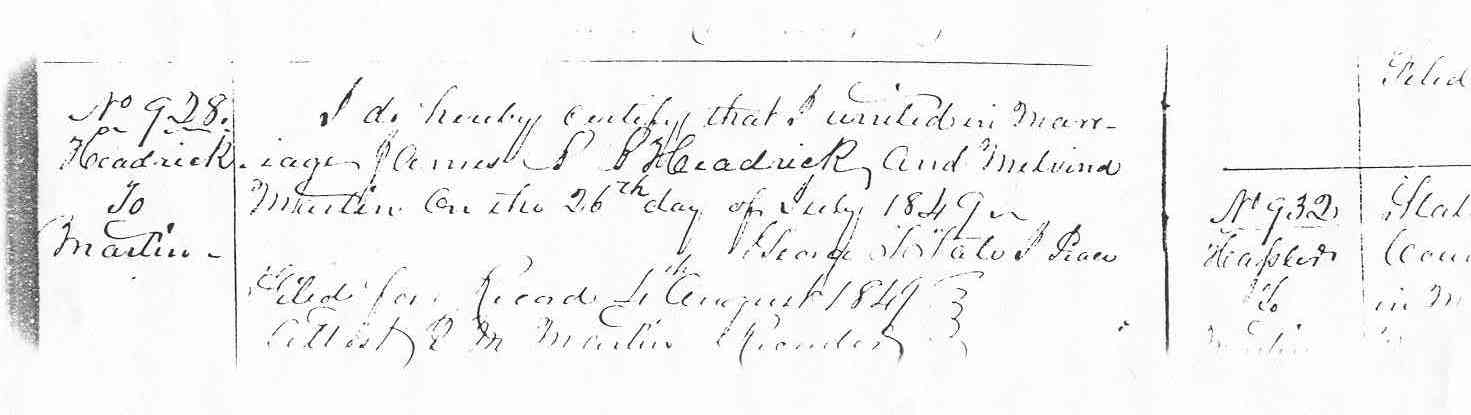 No 928.
Headrick
To
Martin -
I do hereby certify that I united in Marr-
iage James P P Headrick and Melvind
Martin On the 26th day of July 1849
George Slato J Peace
Filed for Record 4th August 1849
Attest R M Martin Recorder
Filed
No 932
To
in M